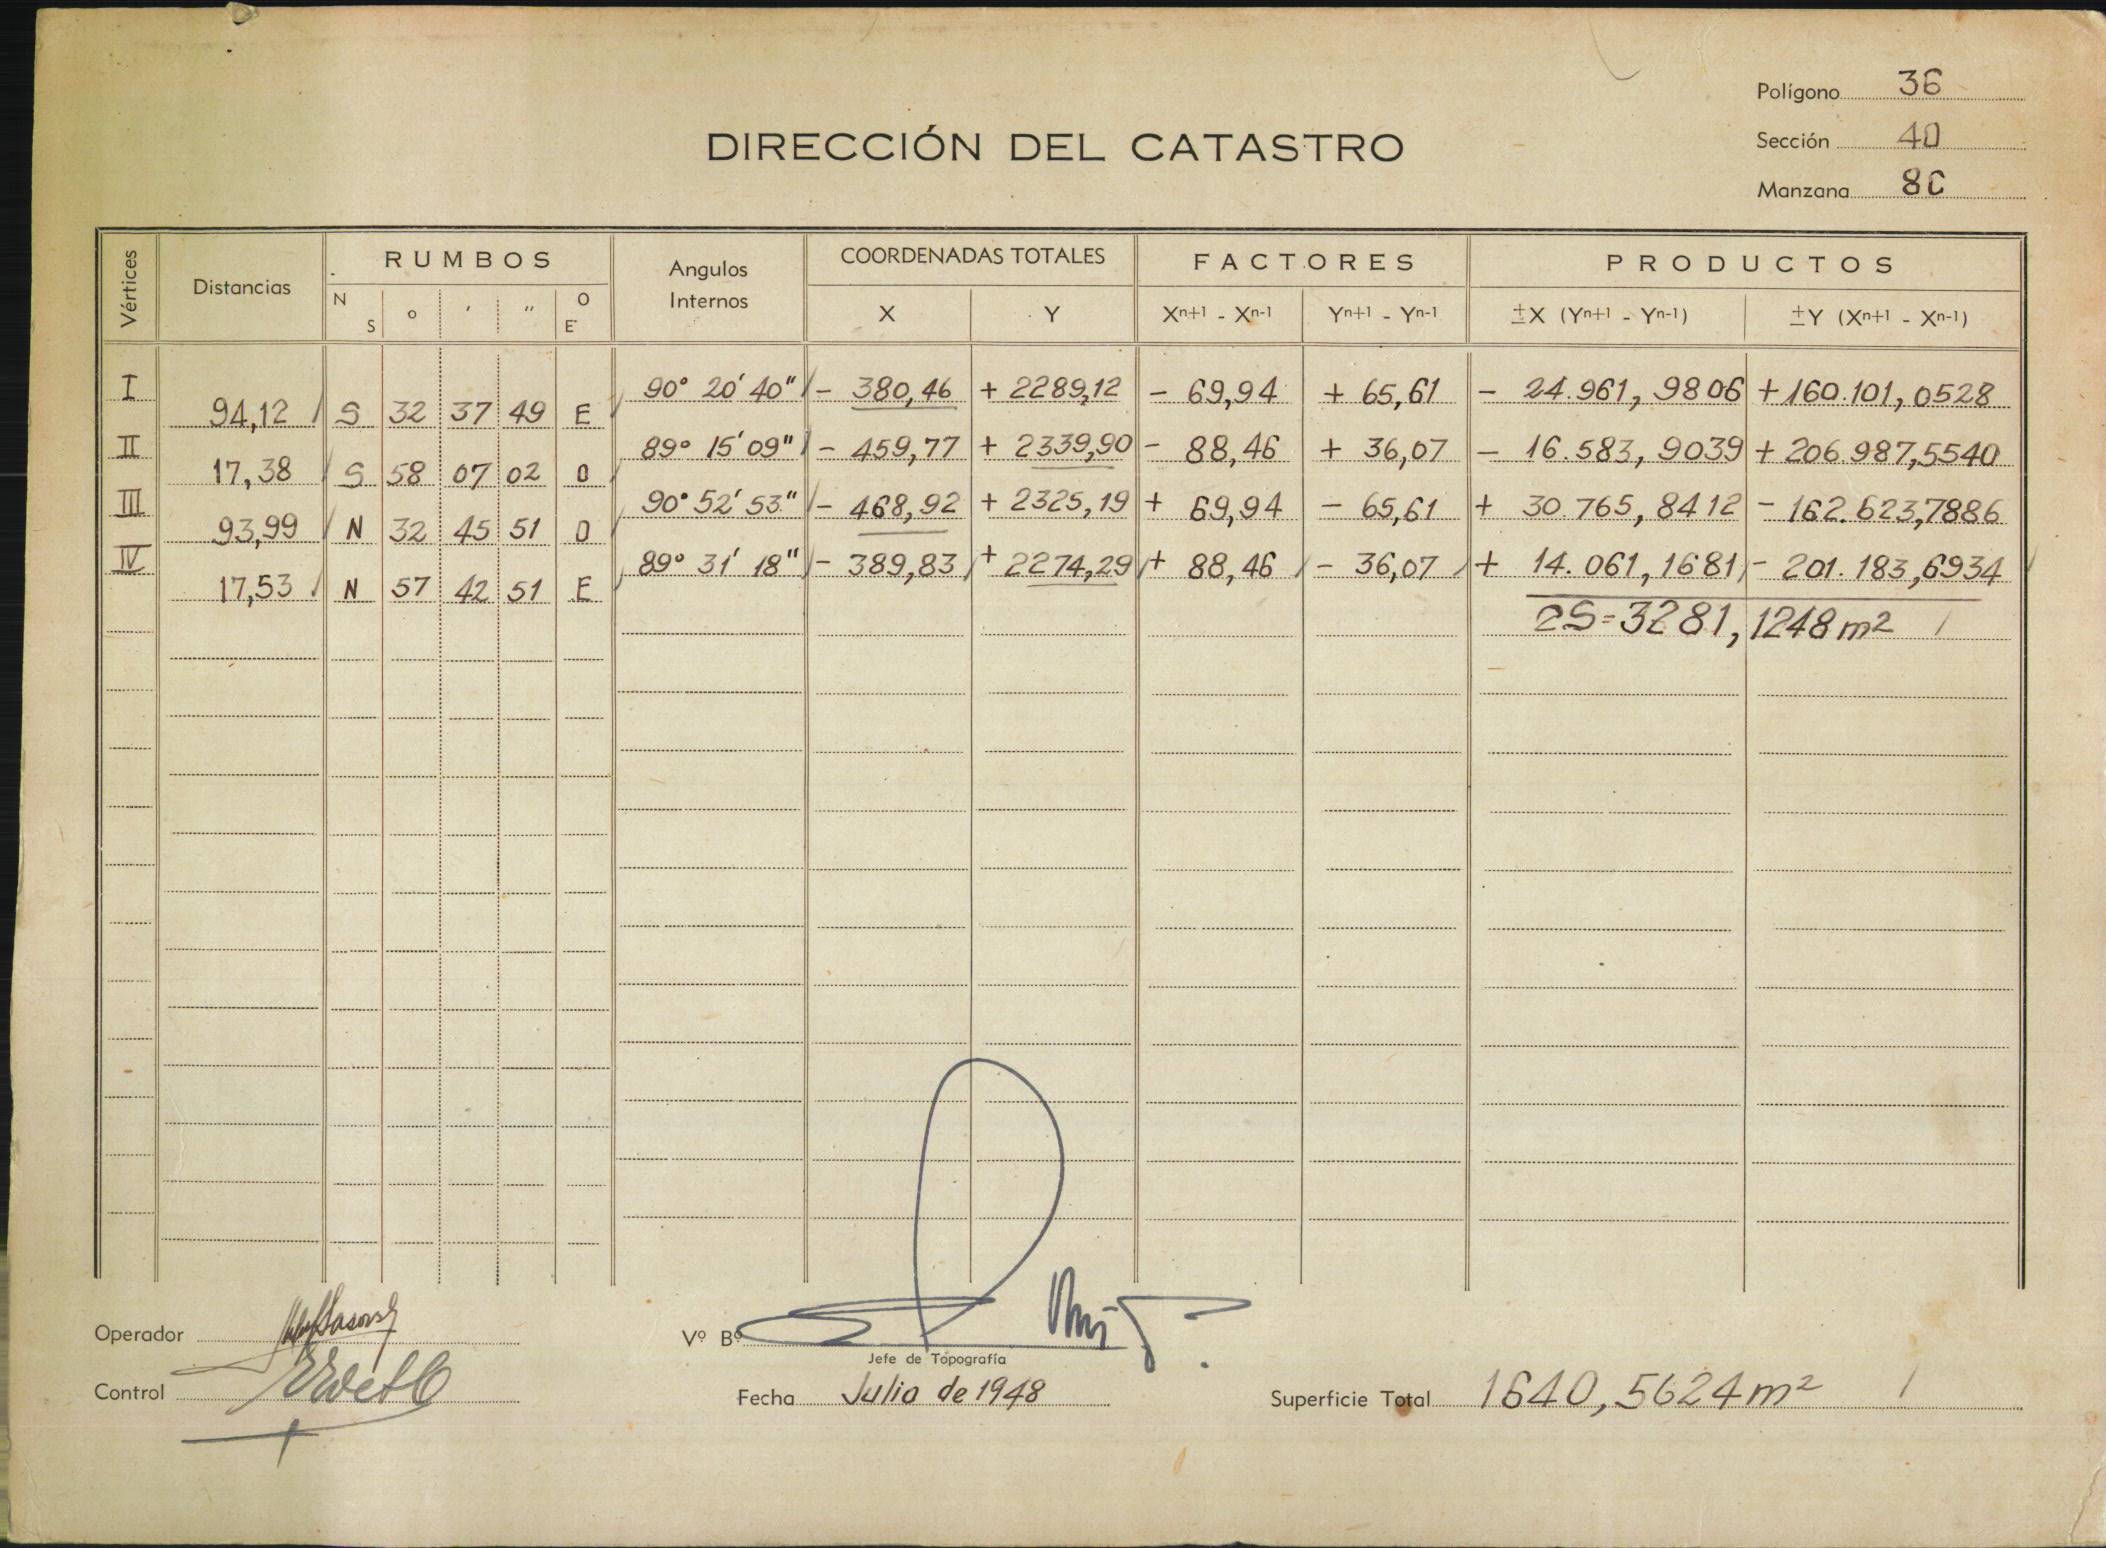 Polígono 36
DIRECCIÓN DEL CATASTRO
Sección 40
Manzana 8C
Vértices Distancias RUMBOS Angulos Internos COORDENADAS TOTALES FACTORES PRODUCTOS
N S o ′ ″ O E X Y Xn+1 - Xn-1 Yn+1 - Yn-1 ±X (Yn+1 - Yn-1) ±Y (Xn+1 - Xn-1)
I 90° 20′ 40″ - 380,46 + 2289,12 - 69,94 + 65,61 - 24.961,9806 + 160.101,0528
94,12 S 32 37 49 E
II 89° 15′ 09″ - 459,77 + 2339,90 - 88,46 + 36,07 - 16.583,9039 + 206.987,5540
17,38 S 58 07 02 O
III 90° 52′ 53″ - 468,92 + 2325,19 + 69,94 - 65,61 + 30.765,8412 - 162.623,7886
93,99 N 32 45 51 O
IV 89° 31′ 18″ - 389,83 + 2274,29 + 88,46 - 36,07 + 14.061,1681 - 201.183,6934
17,53 N 57 42 51 E
2S=3281,1248 m2
Operador
Vº Bº
Jefe de Topografía
Control
Fecha Julio de 1948
Superficie Total 1640,5624 m2